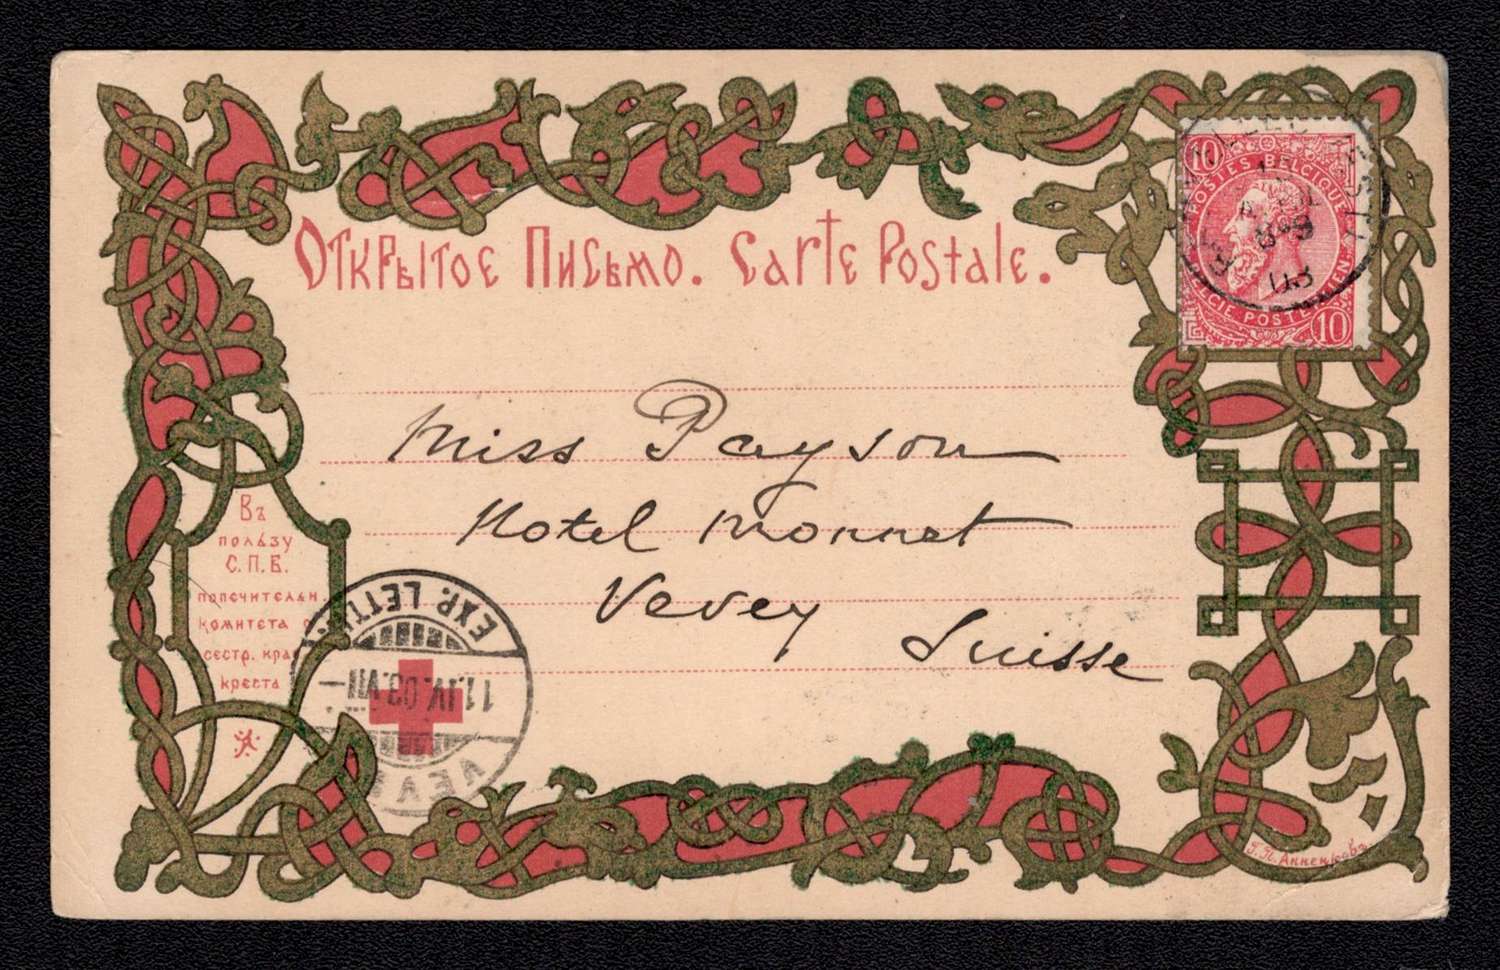 Открытое Письмо. Carte Postale.
10
POSTES BELGIQUE
10
Miss Payson
Hotel Monnet
Vevey
Suisse
Въ
пользу
С.П.Б.
попечительн.
комитета о
сестр. крас
креста
EXP. LETTR.
11.IV.03.VII
VEVEY
Г.П.Анненковъ